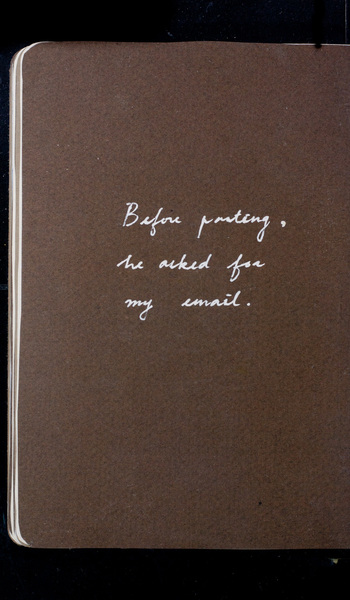 Before parting,
he asked for
my email.